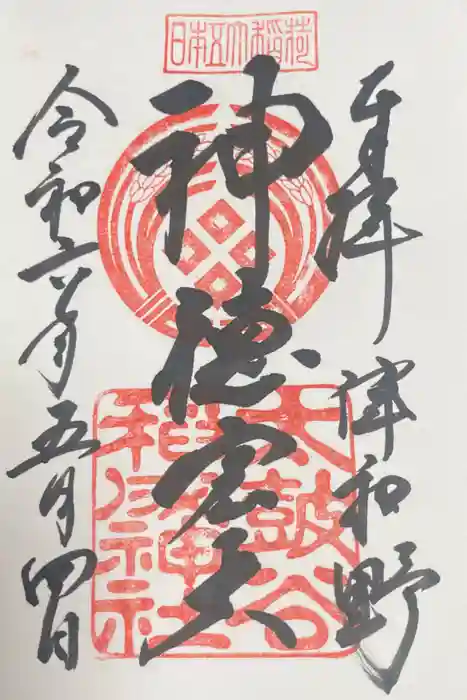 日本五大稲荷
奉拝 津和野
神徳宏大
令和六年五月四日
太鼓谷
稲成神社